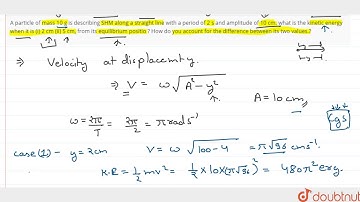 A particle of mass 10 g is describing SHM along a straight line with a period of 2 s and amplitude of 10 cm. what is the kinetic energy
when it is (i) 2 cm (ii) 5 cm, from its equilibrium positio ? How do you account for the difference between its two values.?
⇒ Velocity at displacemnty.
⇒ V = ω√(A² - y²)
A = 10 cm,
ω = 2π/T = 2π/2 = π rad s⁻¹
Cgs
case (1) - y = 2cm V = ω √(100 - 4) = π√96 cm s⁻¹.
K.E = 1/2 mv² = 1/2 × 10 × (π√96)² = 480π² erg.
doubtnut